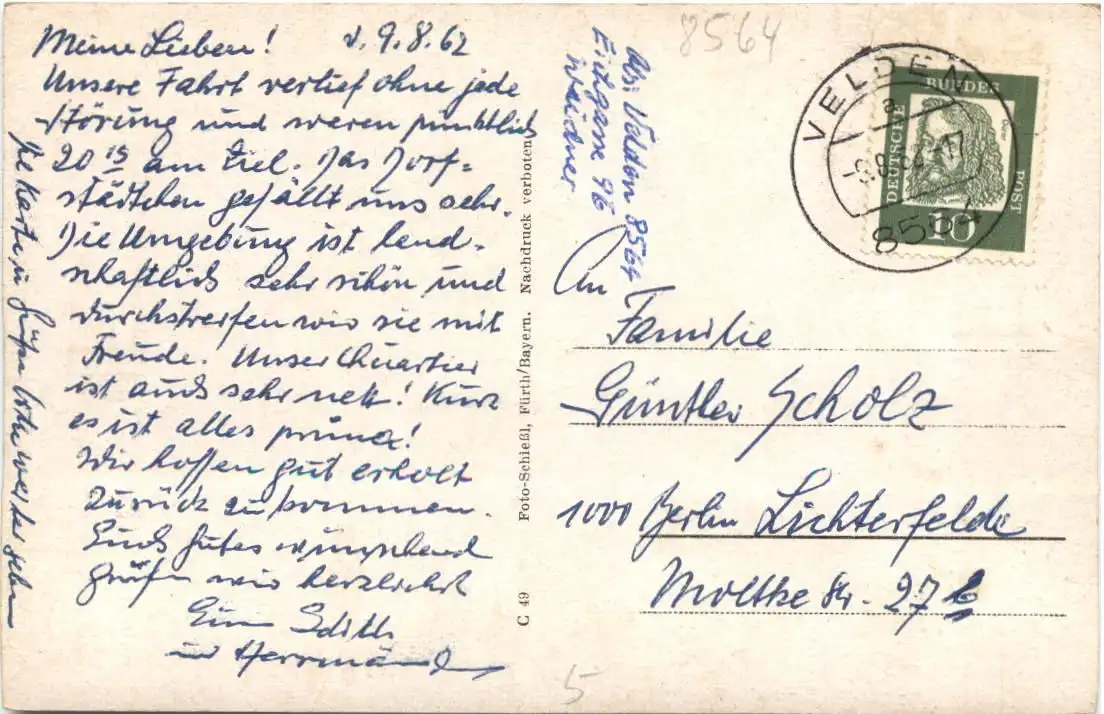 Meine Lieben! d. 9.8.62
Unsere Fahrt verlief ohne jede
Störung und waren pünktlich
20 15 am Ziel. Das Dorf=
städtchen gefällt uns sehr.
Die Umgebung ist land-
schaftlich sehr schön und
durchstreifen wir sie mit
Freude. Unser Quartier
ist auch sehr nett! Kurz
es ist alles prima!
Wir hoffen gut erholt
zurück zu kommen.
Euch Gutes wünschend
grüßen wir herzlichst
Eure Edith
und Herrmann
Die Karte
8564
Abs: Velden 8564
96
C 49 Foto-Schießl, Fürth/Bayern. Nachdruck verboten
VELDEN
a
8564
DEUTSCHE BUNDES POST
Dürer
10
An
Familie
Günther Scholz
1000 Berlin Lichterfelde
Moltke Str. 27
5